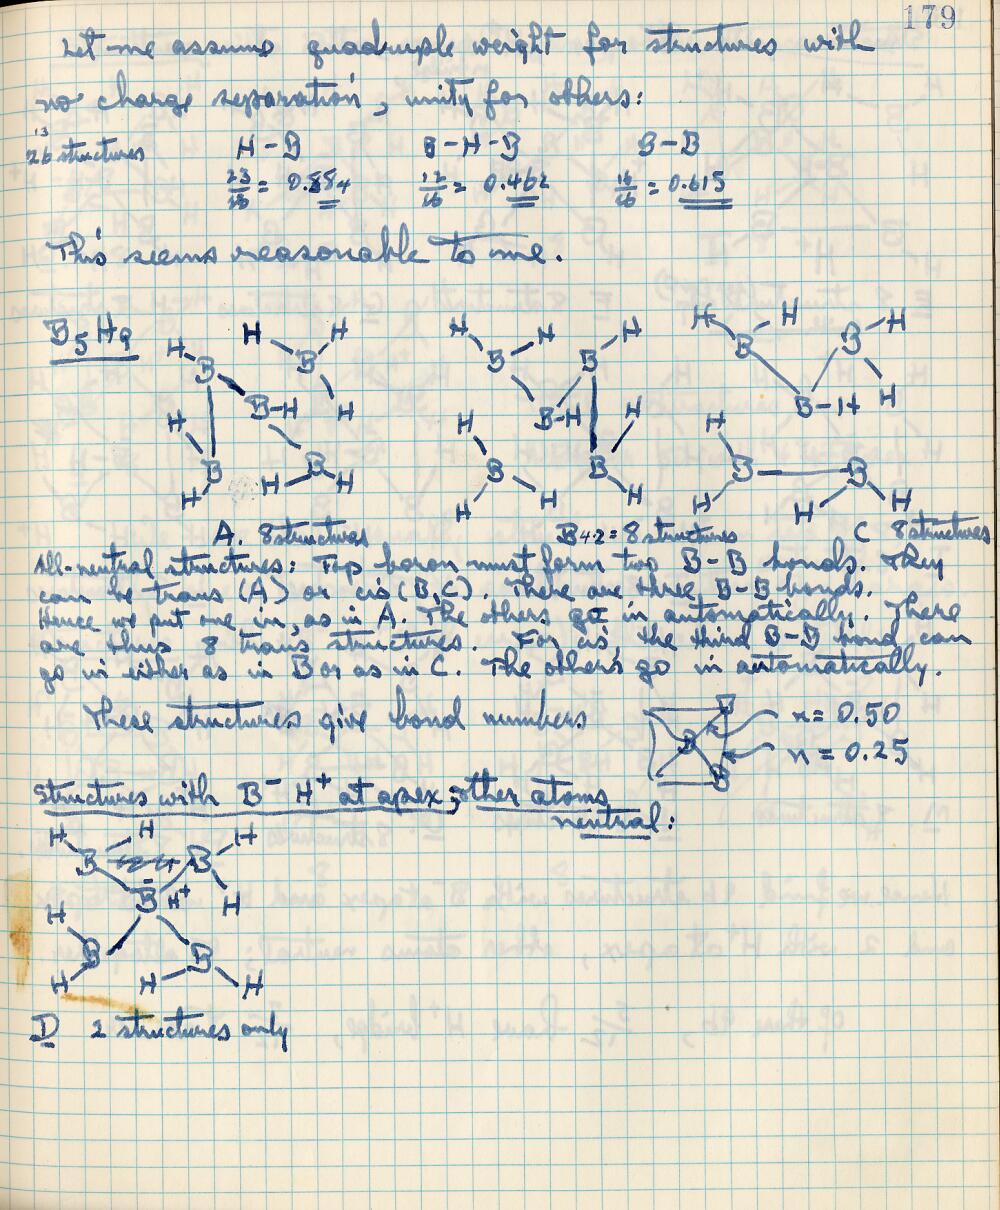 179
Let me assume quadruple weight for structures with
no charge separation, unity for others:
13
26 structures H-B B-H-B B-B
23/26 = 0.884 12/26 = 0.462 16/26 = 0.615
This seems reasonable to me.
B5H9
H H H H H H H H H
B B B B B B
B-H B-H B-H H
H H H H
B B B B B B
H H H H H H H H H
A. 8 structures B 4·2 = 8 structures C 8 structures
All-neutral structures: Top boron must form two B-B bonds. They
can be trans (A) or cis (B,C). There are three B-B bonds.
Hence we put one in, as in A. The others go in automatically. There
are thus 8 trans structures. For cis, the third B-B bond can
go in either as in B or as in C. The others go in automatically.
These structures give bond numbers
B B B
n = 0.50
n = 0.25
Structures with B- H+ at apex, other atoms
neutral:
H H H
B B
B- H+ H
H
B B
H H H
D 2 structures only